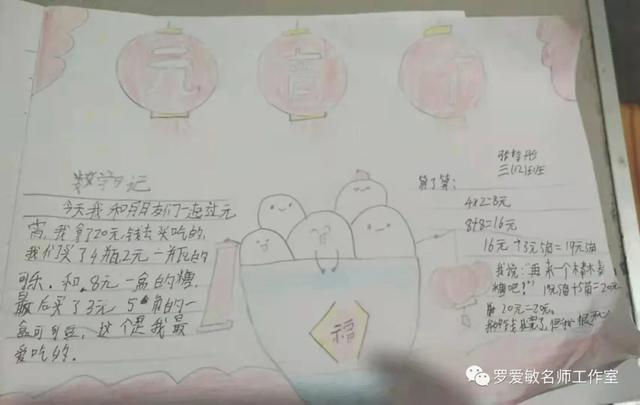 元宵节
数学日记
今天我和月月友们一起过元
宵,我拿了20元钱去买吃的,
我们买了4瓶2元一瓶的
可乐.和.8元一盒的糖.
最后买了3元5角的一
盒可可豆,这个是我最
爱吃的.
三(12)班
算了算:
4×2=8元
8+8=16元
16元+3元5角=19元5角
我说:"再来一个棒棒
糖吧!"19元5角+5角=20元
20元-20元
福
罗爱敏名师工作室